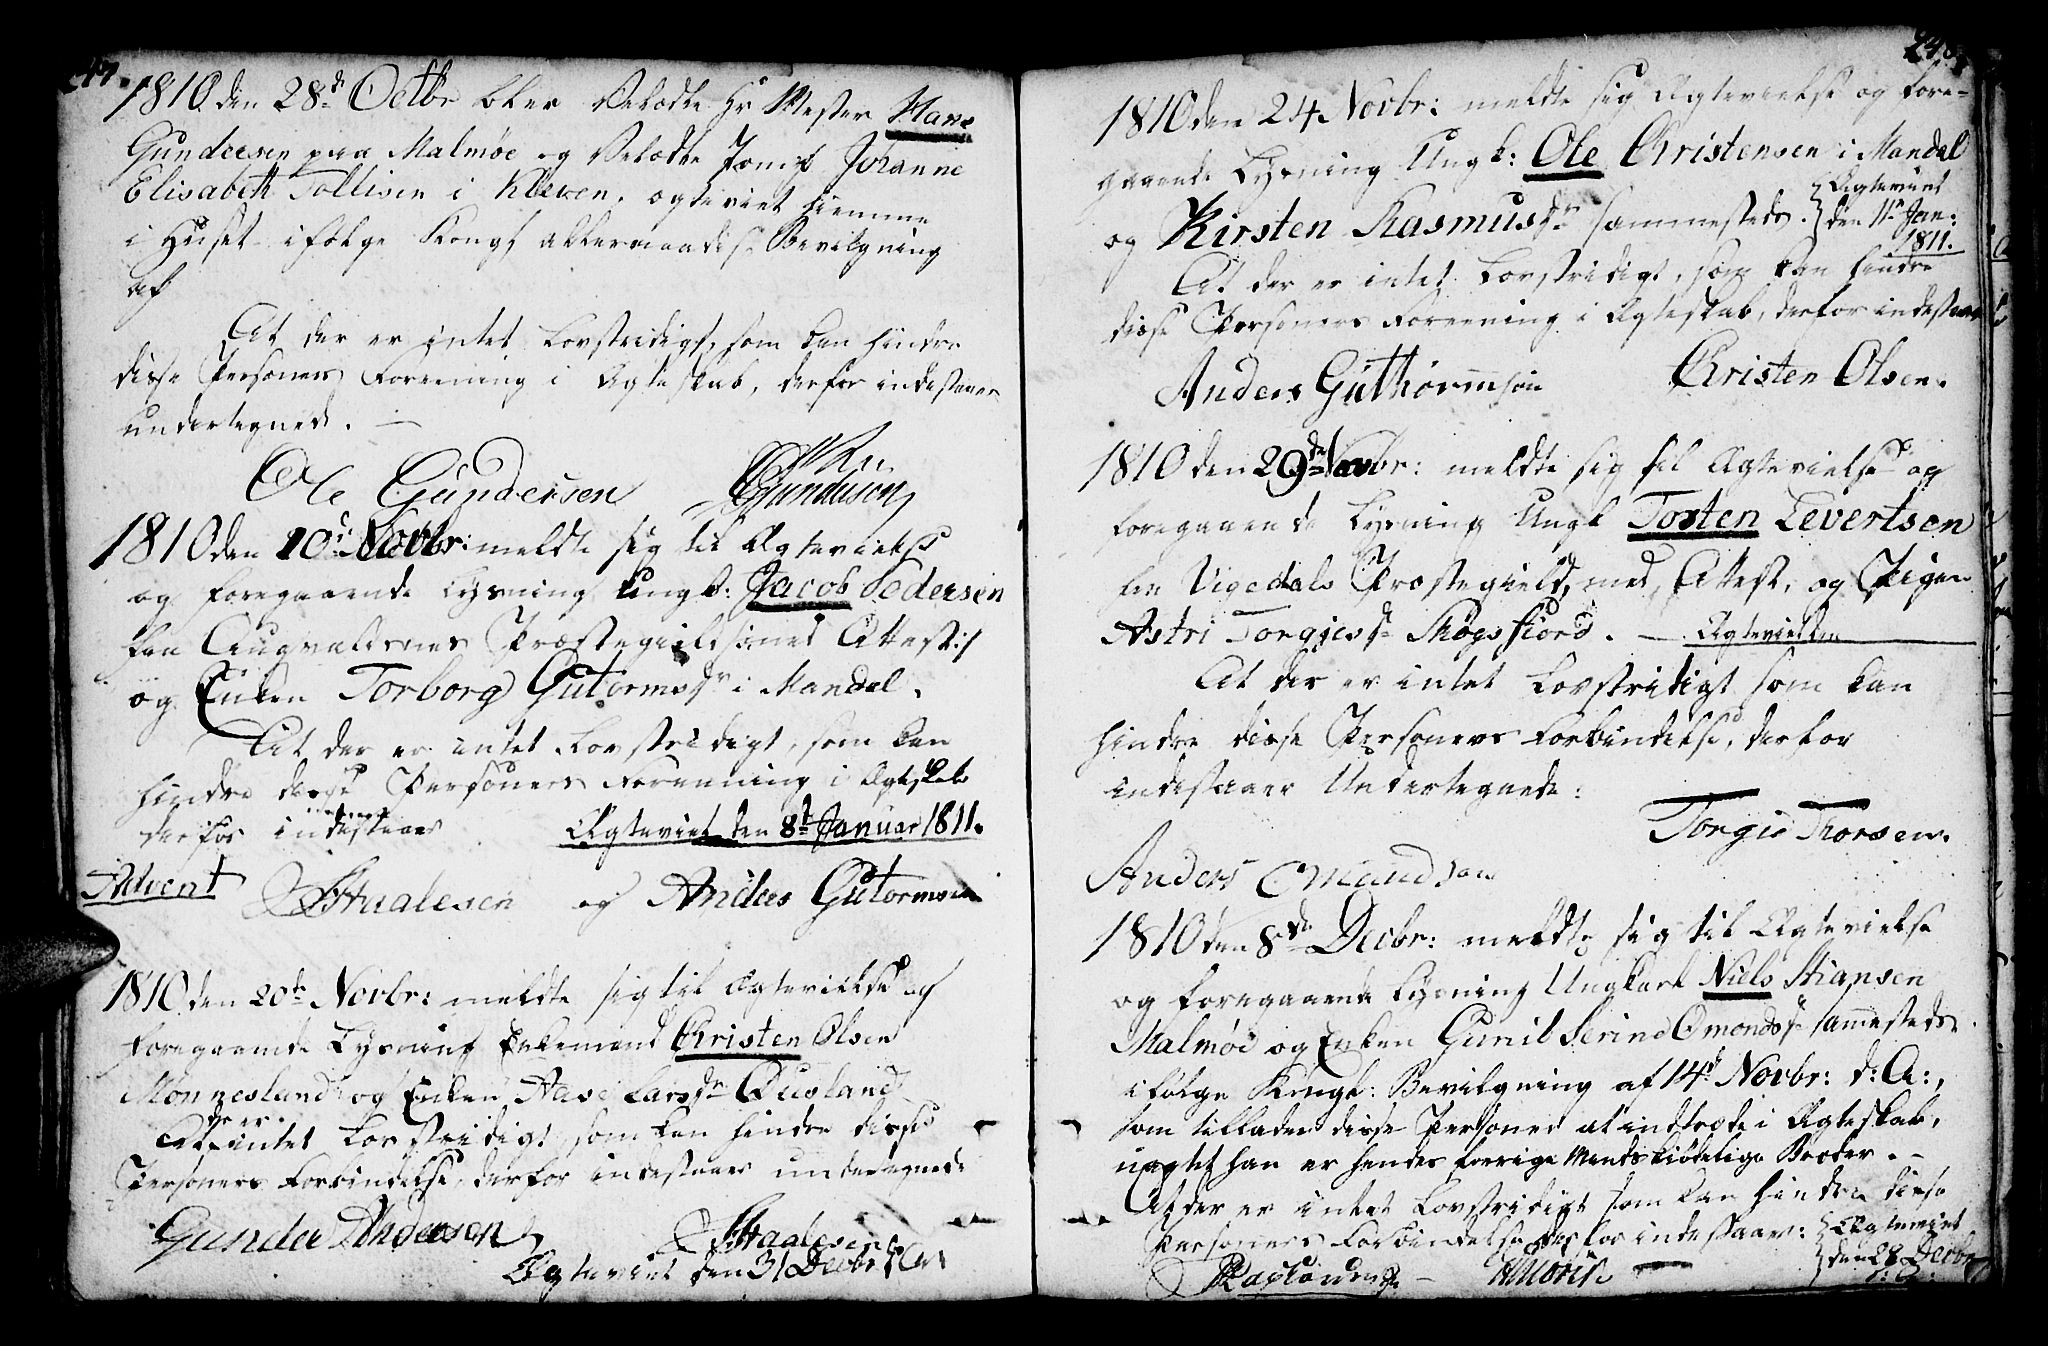 247.
1810 den 28de Octbr blev Velædle Hr Mester Hans
Gundersen paa Malmøe og Velædle Jomfr Johanne
Elisabeth Tollisen i Kleven, ægteviet hiemme
i Huset ifølge Kongl allernaadigste Bevilgning
af
At der er intet Lovstridigt, som kan hindre
disse Personers Foreening i Ægteskab, derfor indestaaer
undertegnede.
Ole Gundersen Gundersen
1810 den 10de Novbr: meldte sig til Ægtevielse
og foregaaende Lysning Ungk: Jacob Pedersen
fra Augvaldsnes Præstegield med Attest
og Enken Torborg Gutormsdr i Mandal.
At der er intet Lovstridigt, som kan
hindre disse Personers Foreening i Ægteskab
derfor indestaaer Ægteviet den 8de Januar 1811.
Advent Staalesen og Anders Gutormsen
1810 den 20de Novbr: meldte sig til Ægtevielse og
foregaaende Lysning Enkemand Christen Olsen
Mønnesland og Enken Aase Larsdr Duusland
At der er intet Lovstridigt, som kan hindre disse
Personers Forbindelse, derfor indestaaer undertegnede
Gunder Andersen Staalesen
Ægteviet den 31 Decbr d: A:
248.
1810 den 24 Novbr: meldte sig Ægtevielse og fore-
gaaende Lysning Ungk: Ole Christensen i Mandal
og Kirsten Rasmusdr sammesteds. Ægteviet den 11te Jan: 1811.
At der er intet Lovstridigt, som kan hindre
disse Personers Foreening i Ægteskab, derfor indestaaer
Anders Guthormsøn Christen Olsen.
1810 den 29de Novbr: meldte sig til Ægtevielse og
foregaaende Lysning Ungk Tosten Severtsen
fra Vigedals Præstegield, med Attest, og Pigen
Astri Torgiesdr Skogsfiord. — Ægteviet den
At der er intet Lovstridigt som kan
hindre disse Personers Forbindelse, derfor
indestaaer Undertegnede:
Torgie Thorsen.
Anders Omundsøn
1810 den 8de Decbr: meldte sig til Ægtevielse
og foregaaende Lysning Ungkarl Niels Stiansen
Malmøe og Enken Gunil Serine Omondsdr sammesteds
ifølge Kongl: Bevilgning af 14de Novbr: d: A:,
som tillader disse Personer at indtræde i Ægteskab,
uagtet han er hendes forrige Mands kiødelige Broder. –
At der er intet Lovstridigt som kan hindre disse
Personers Forbindelse derfor indestaaer: Ægteviet
den 28 Decbr